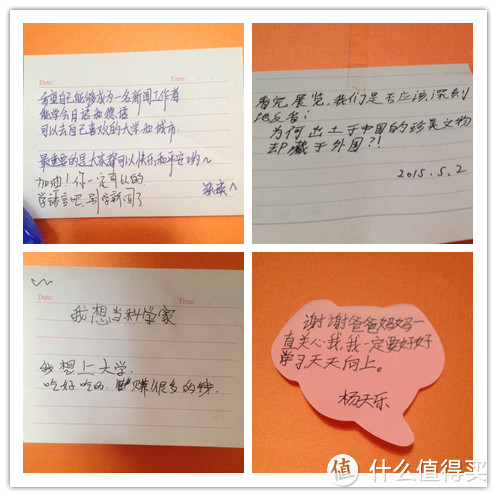 Date:
Time:
希望自己能够成为一名新闻工作者
能学会日语和德语
可以去自己喜欢的大学和城市
最重要的是大家都可以快乐和平安哟~
加油!你一定可以的
学语言吧,别学新闻了
看完展览,我们是否应该深刻
地反省:
为何出土于中国的珍美文物
却藏于外国?!
2015.5.2
Date:
Time:
我想当科学家
我想上大学.
吃好吃的,赚很多的钱.
谢谢爸爸妈妈一
直关心我,我一定要好好
学习天天向上。
杨天乐
值 什么值得买